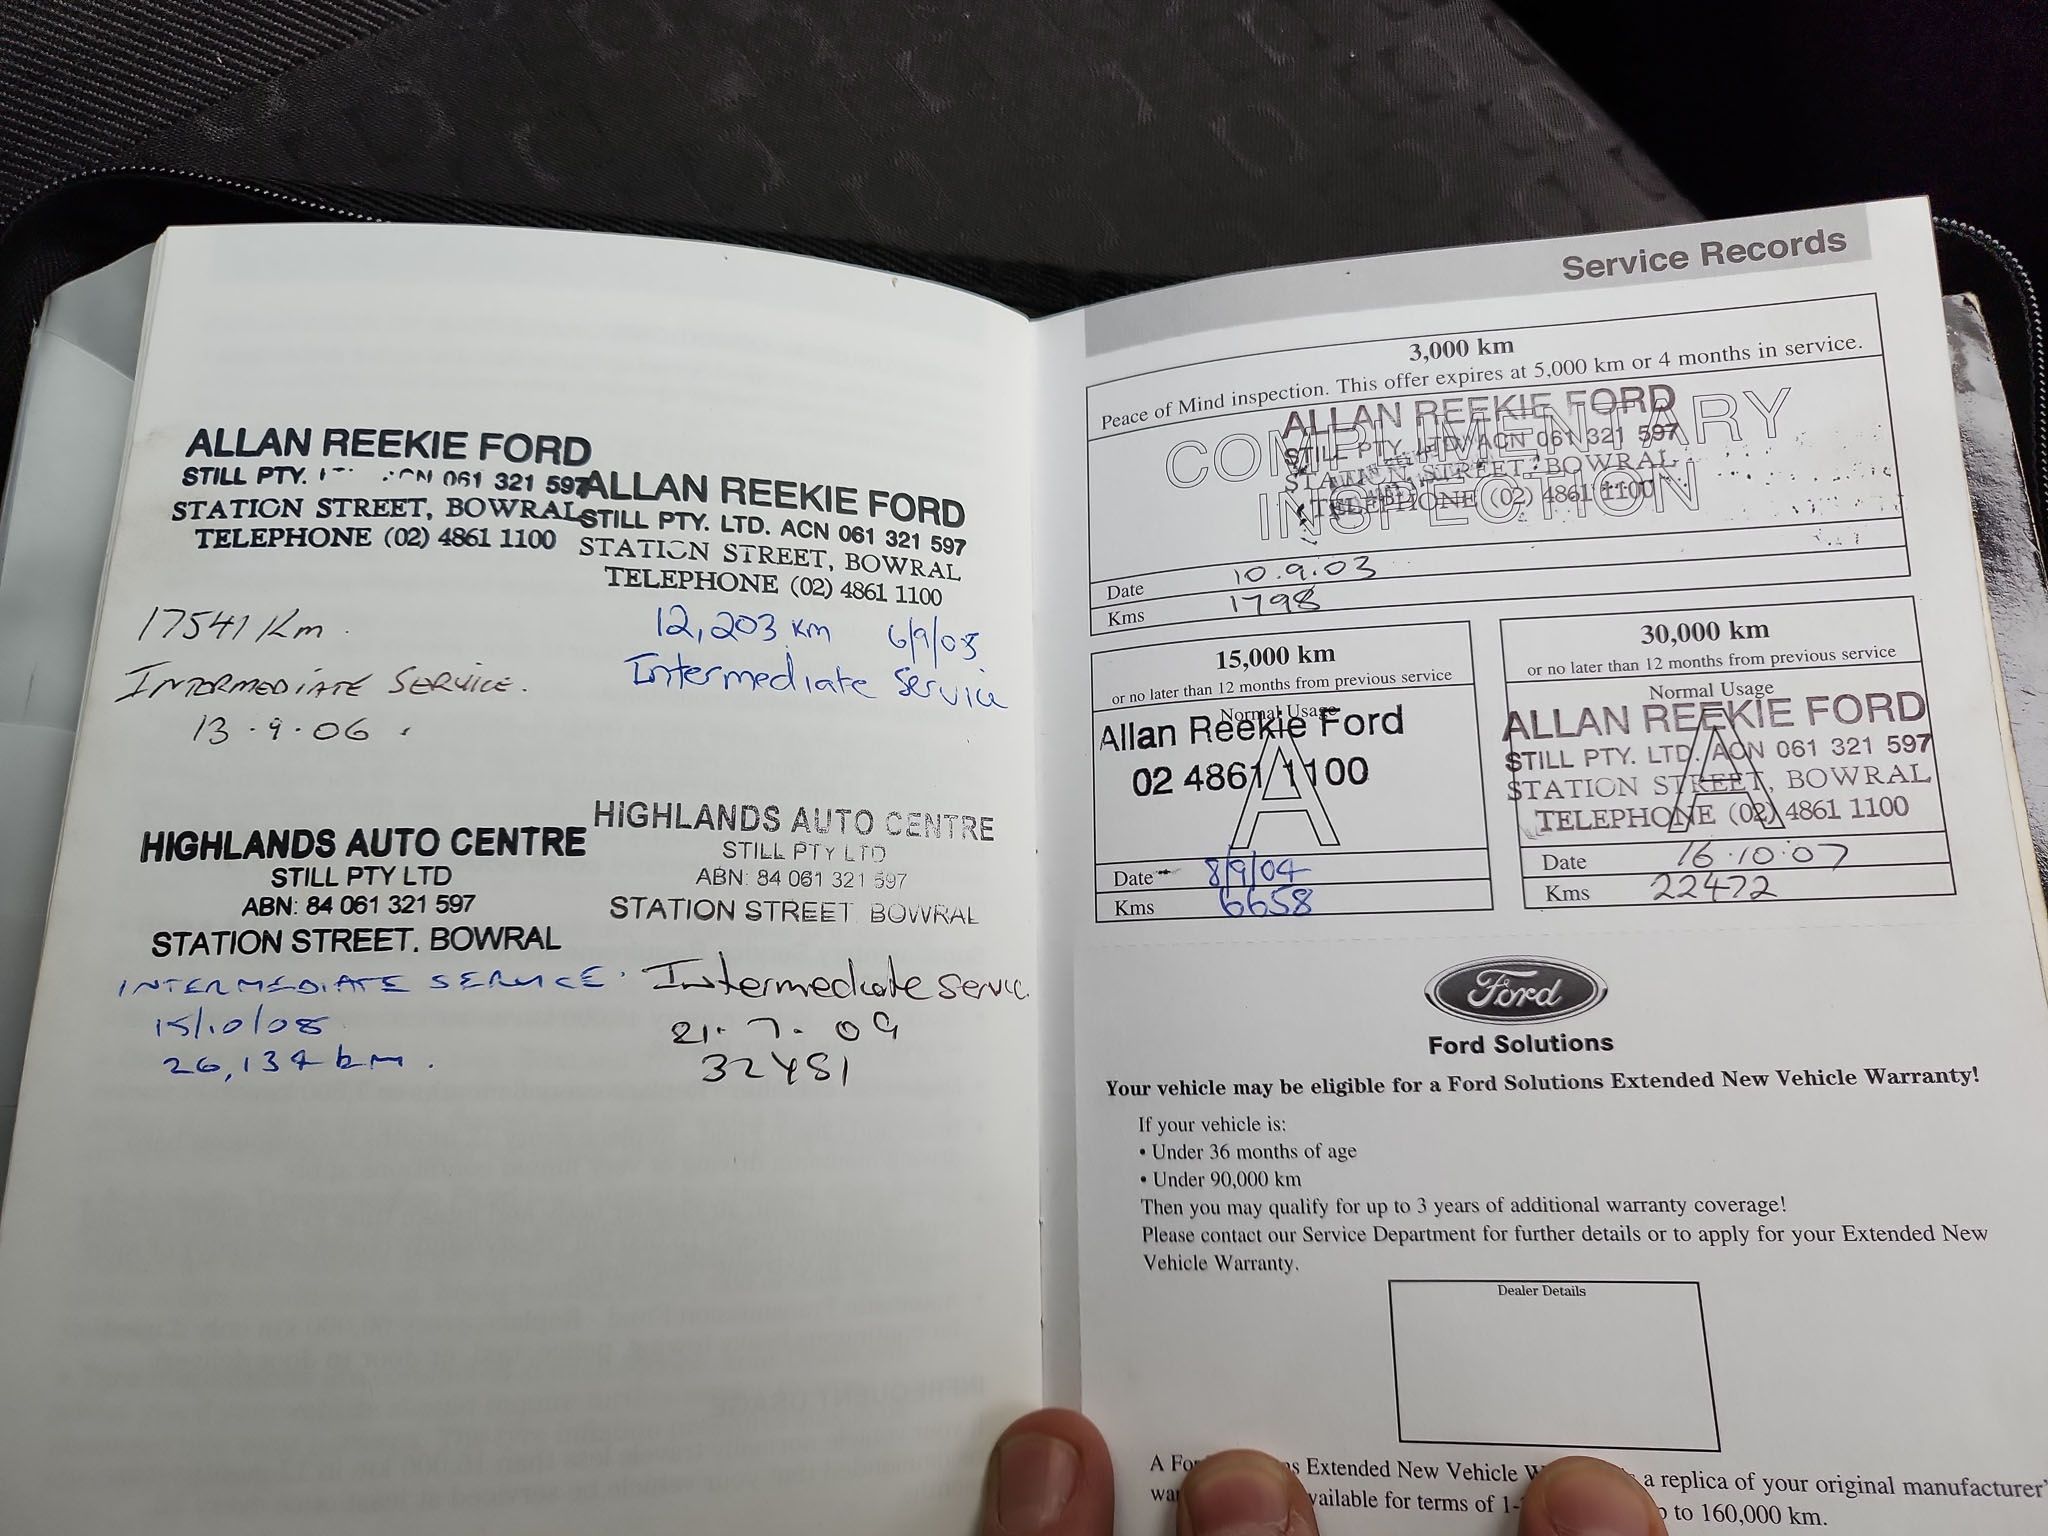 ALLAN REEKIE FORD
STILL PTY. ACN 061 321 597
STATION STREET, BOWRAL
TELEPHONE (02) 4861 1100
17541 Km
INTERMEDIATE SERVICE.
13.9.06
ALLAN REEKIE FORD
STILL PTY. LTD. ACN 061 321 597
STATION STREET, BOWRAL
TELEPHONE (02) 4861 1100
12,203 km 6/9/05
Intermediate Service
HIGHLANDS AUTO CENTRE
STILL PTY LTD
ABN: 84 061 321 597
STATION STREET. BOWRAL
INTERMEDIATE SERVICE.
15/10/08
26,134 km.
HIGHLANDS AUTO CENTRE
STILL PTY LTD
ABN: 84 061 321 597
STATION STREET BOWRAL
Intermediate Service
21.7.09
32481
Service Records
3,000 km
Peace of Mind inspection. This offer expires at 5,000 km or 4 months in service.
COMPLIMENTARY
INSPECTION
ALLAN REEKIE FORD
STILL PTY. LTD. ACN 061 321 597
STATION STREET, BOWRAL
TELEPHONE (02) 4861 1100
Date 10.9.03
Kms 1798
15,000 km
or no later than 12 months from previous service
Normal Usage
A
Allan Reekie Ford
02 4861 1100
Date 8/9/04
Kms 6658
30,000 km
or no later than 12 months from previous service
Normal Usage
A
ALLAN REEKIE FORD
STILL PTY. LTD. ACN 061 321 597
STATION STREET, BOWRAL
TELEPHONE (02) 4861 1100
Date 16.10.07
Kms 22472
Ford
Ford Solutions
Your vehicle may be eligible for a Ford Solutions Extended New Vehicle Warranty!
If your vehicle is:
• Under 36 months of age
• Under 90,000 km
Then you may qualify for up to 3 years of additional warranty coverage!
Please contact our Service Department for further details or to apply for your Extended New
Vehicle Warranty.
Dealer Details
A Extended New Vehicle a replica of your original manufacturer'
available for terms of to 160,000 km.